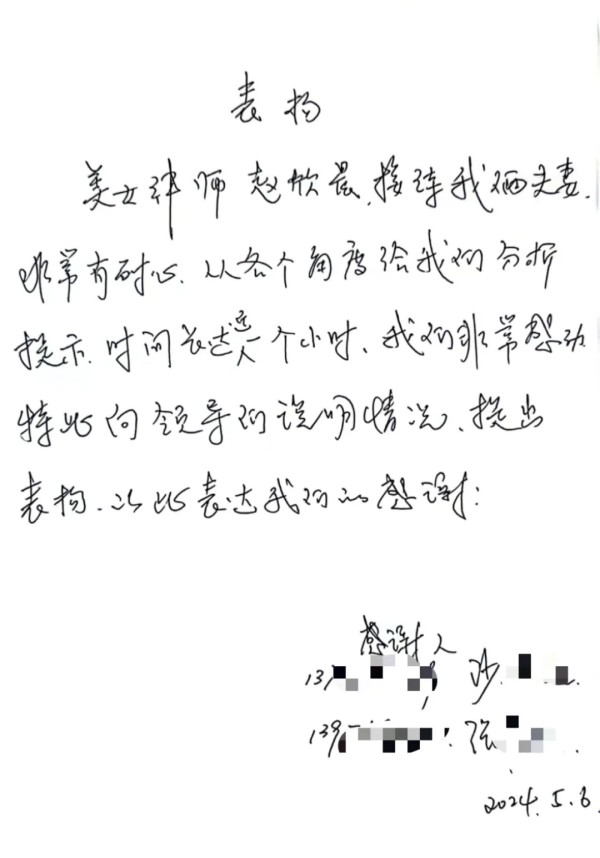 表扬
美女律师赵欣晨,接待我俩夫妻.
非常有耐心.从各个角度给我们分析
提示.时间长达 个小时、我们非常感动
特此向领导们说明情况、提出
表扬.以此表达我们的感谢:
感谢人
13 沙
139 张
2024.5.6